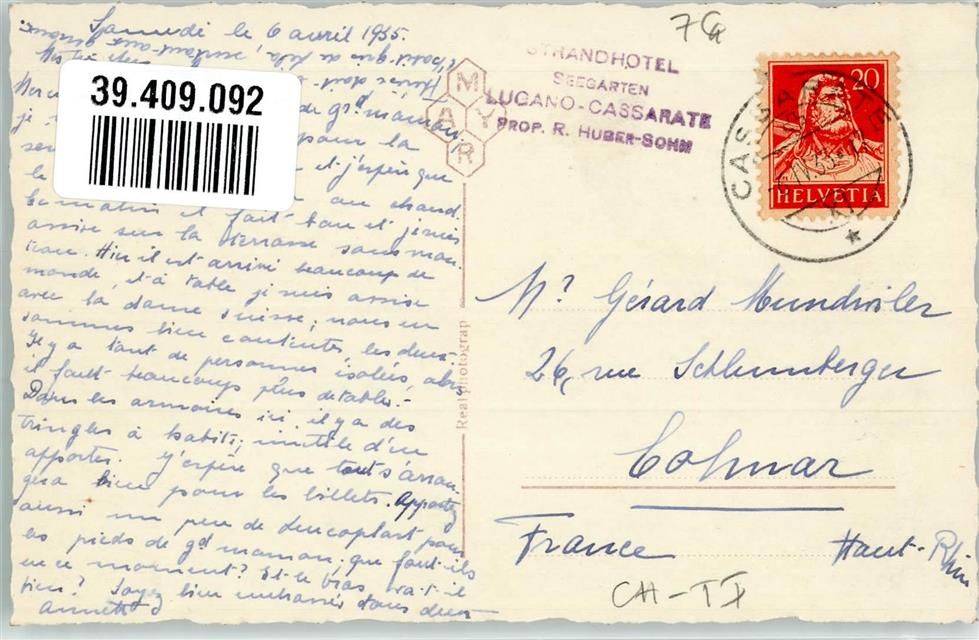 Samedi le 6 avril 1935.
39.409.092
Merc
de gd maman,
je
pour la
et j'espère que
le
au chaud.
Ce matin il fait bon et je suis
assise sur la terrasse sans man-
teau. Hier il est arrivé beaucoup de
monde, et à table je suis assise
avec la dame suisse; nous en
sommes bien contentes, les deux.
Il y a tant de personnes isolées, alors
il faut beaucoup plus de tables.-
Dans les armoires ici il y a des
tringles à habits; inutile d'en
apporter. J'espère que tout s'arran-
gera bien pour les billets. Apportez
aussi un peu de Leucoplast pour
les pieds de gd maman; que font-ils
en ce moment? Et le bras va-t-il
bien? Soyez bien embrassés tous deux
Annette
MAYR
Real photograp
STRANDHOTEL
SEEGARTEN
LUGANO-CASSARATE
PROP. R. HUBER-SOHM
7G
20
HELVETIA
CASSARATE
Mr Gérard Mundwiler
26, rue Schlumberger
Colmar
France Haut-Rhin
CH-TI